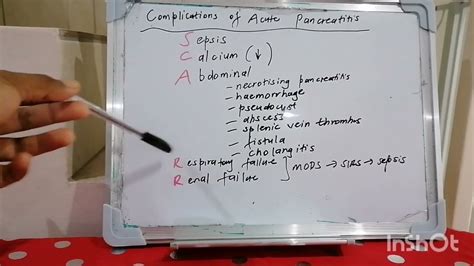 Complications of Acute Pancreatitis
Sepsis
Calcium (↓)
Abdominal
- necrotising pancreatitis
- haemorrhage
- pseudocyst
- abscess
- splenic vein thrombus
- fistula
- cholangitis
Respiratory failure
Renal failure ] MODS → SIRS → sepsis
InShOt